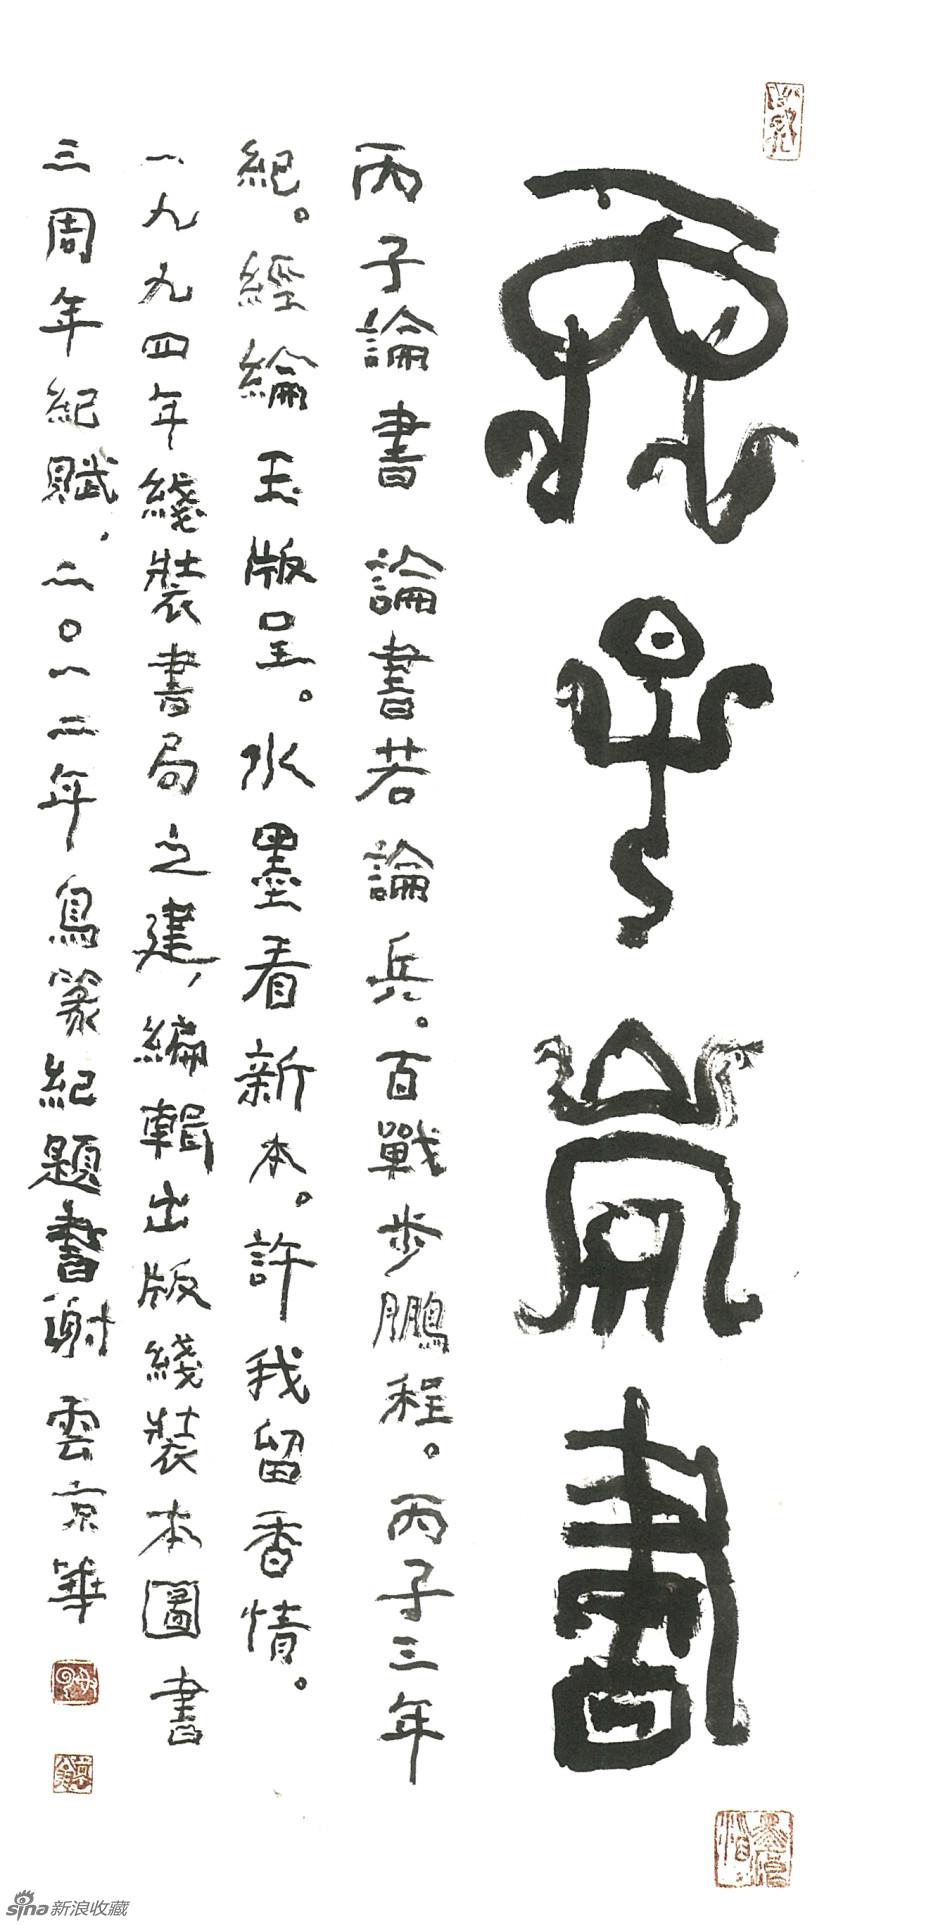 丙子書
丙子論書 論書若論兵。百戰步鵬程。丙子三年
紀。經綸玉版呈。水墨看新本。許我留香情。
一九九四年綫裝書局之建，編輯出版綫裝本圖書
三周年紀賦，二〇一二年鳥篆紀題書謝雲京華
sina新浪收藏